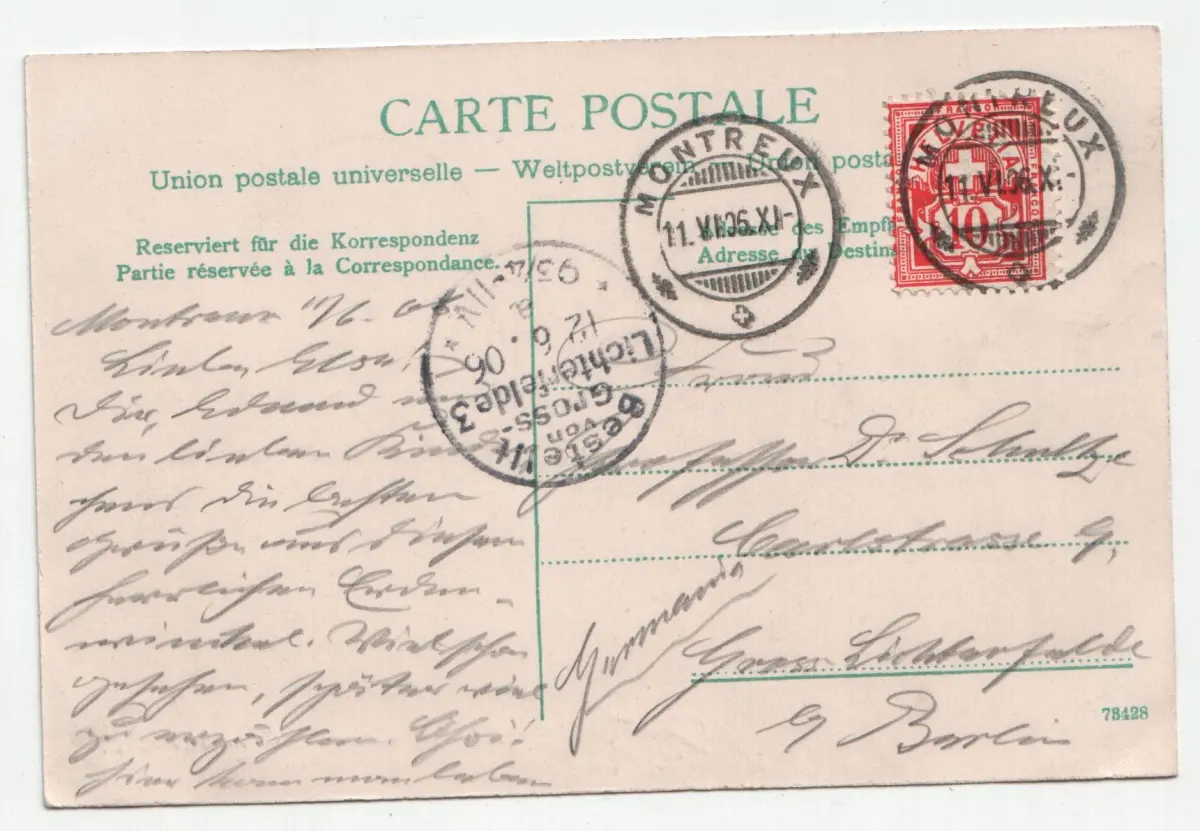 CARTE POSTALE
Union postale universelle — Weltpostverein — Union posta
Reserviert für die Korrespondenz
Partie réservée à la Correspondance.
Adresse des Empfä
Adresse du Destina
MONTREUX
11.VI.06.XI-
MONTREUX
11.VI.06.X
FRANCO
HELVETIA
10
Bestellt
von
Gross-
Lichterfelde 3
12 6. 06
Montreux 11/6. 06
Lieben Elsa!
Dir, Eduard und
den lieben Kinder
chens die besten
Grüße aus diesem
herrlichen Erden-
winkel. Viel schon
gesehen, später viel
zu erzählen.
hier kann man leben
Frau
Professor Dr. Schultze
Carlstrasse 9,
Gross Lichterfelde
b/ Berlin
Germania
73428